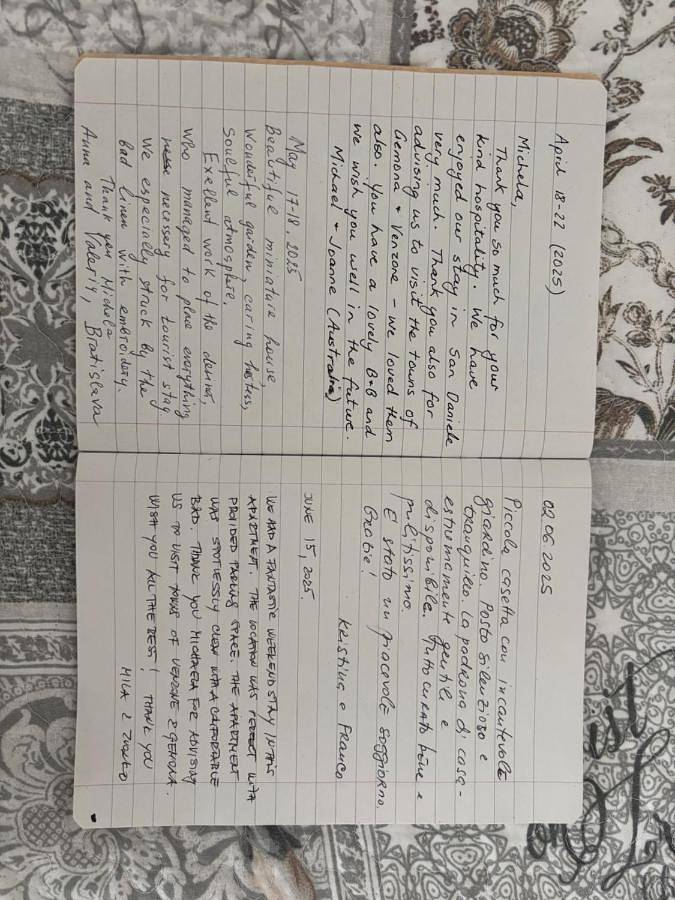 April 18-22 (2025)
Michela,
Thank you so much for your
kind hospitality. We have
enjoyed our stay in San Daniele
very much. Thank you also for
advising us to visit the towns of
Gemona & Venzone - we loved them
also. You have a lovely B+B and
we wish you well in the future.
Michael & Joanne (Australia)
May 17-18. 2025
Beautiful miniature house,
Wonderful garden, caring hostess,
Soulful atmosphere.
Exellent work of the
who managed to place everything
necessary for tourist stay
We especially struck by the
bad linen with embroidery.
Thank you Michela
Anna and Valeriy, Bratislava
02.06.2025
Piccola casetta con incantevole
giardino. Posto silenzioso e
tranquillo. La padrona di casa-
estremamente gentile e
disponibile. Tutto curato bene e
pulitissimo.
E stato un piacevole soggiorno.
Grazie!
Kristina e Franco
JUNE 15, 2025
WE HAD A FANTASTIC WEEKEND STAY IN THIS
APARTMENT. THE LOCATION WAS PERFECT WITH
PROVIDED PARKING SPACE. THE APARTMENT
WAS SPOTLESSLY CLEAN WITH A COMFORTABLE
BAD. THANK YOU MICHAELA FOR ADVISING
US TO VISIT TOWNS OF VENZONE & GEMONA.
WISH YOU ALL THE BEST! THANK YOU
MILA &